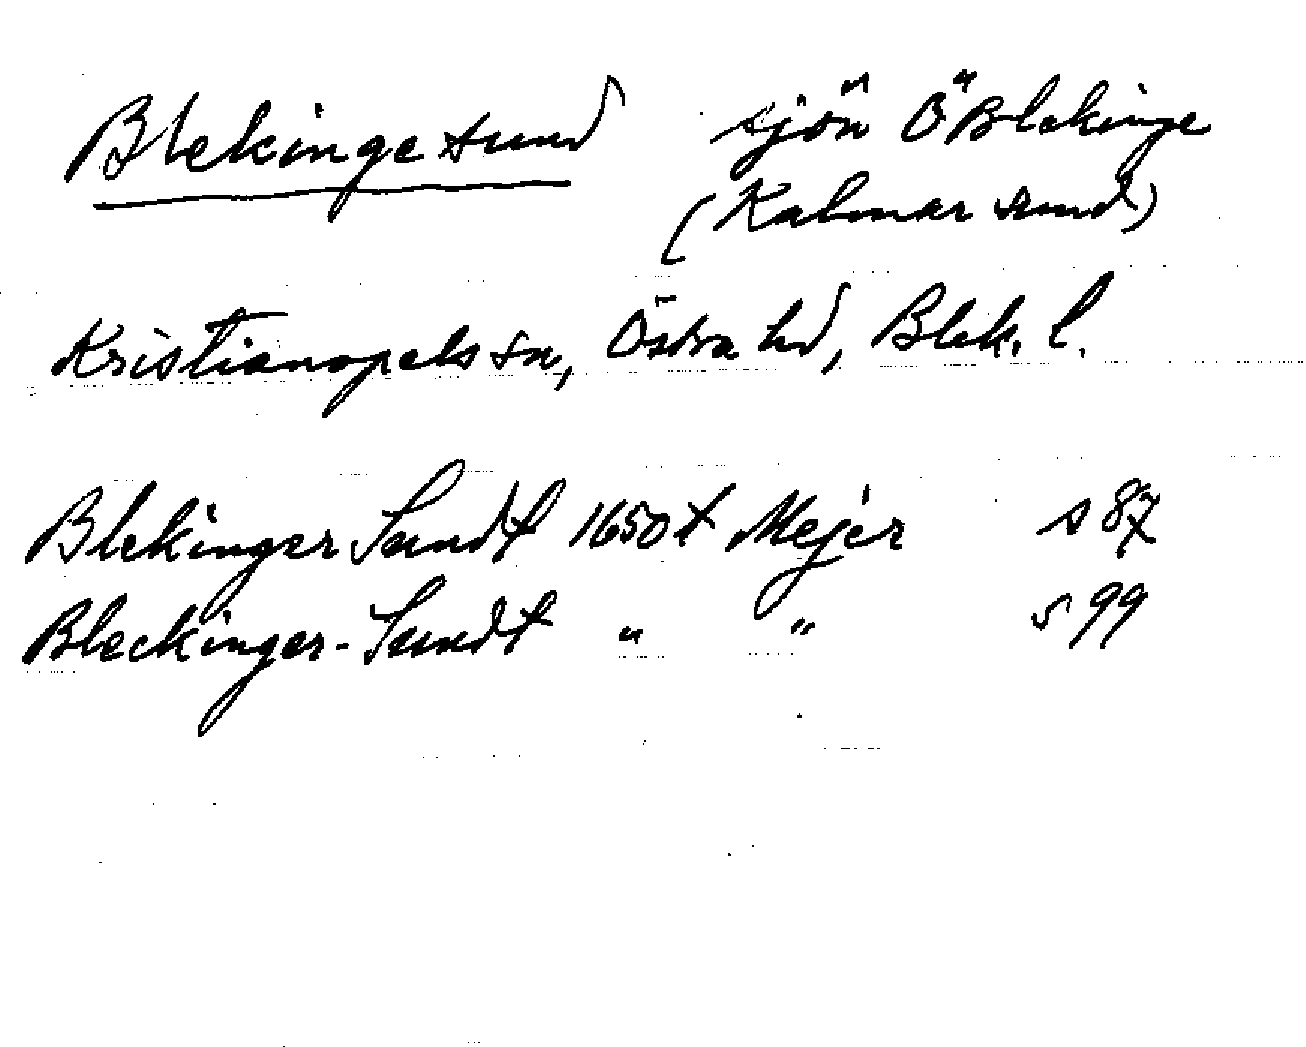 Blekinge sund sjön Ö Blekinge
(Kalmar sund)
Kristianopels sn, Östra hd, Blek. l.
Blekinger Sundt 1650t Mejer s 87
Bleckinger-Sundt " " s 99